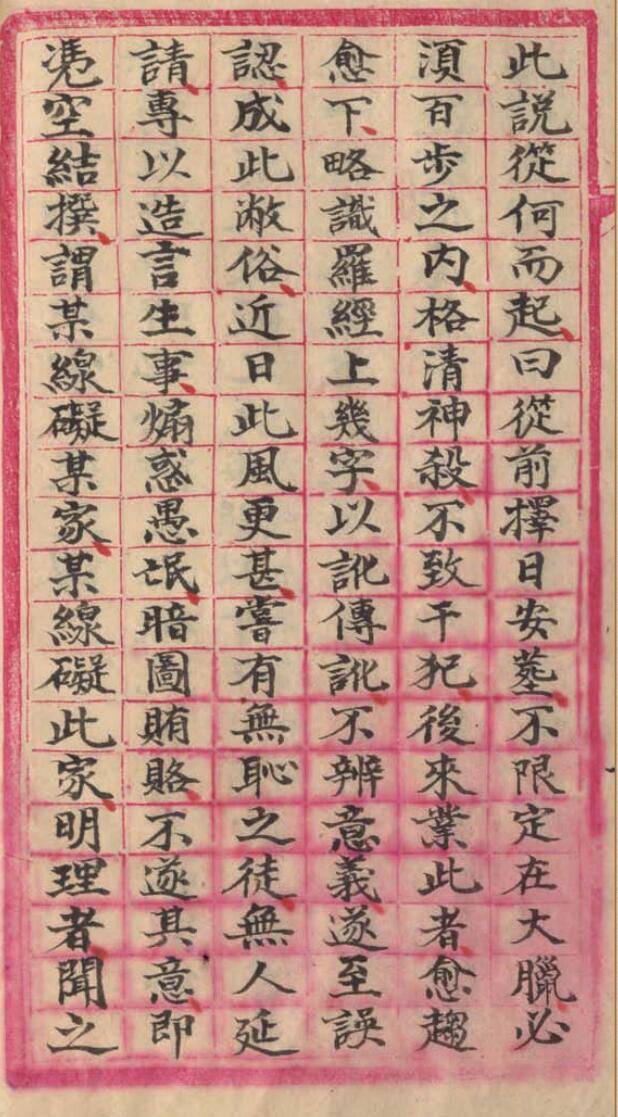 此說從何而起曰從前擇日安塟不限定在大臘必
須百步之内格清神殺不致干犯後來業此者愈趨
愈下略識羅經上幾字以訛傳訛不辨意義遂至誤
認成此敝俗近日此風更甚嘗有無恥之徒無人延
請專以造言生事煽惑愚氓暗圖賄賂不遂其意即
凴空結撰謂某線礙某家某線礙此家明理者聞之